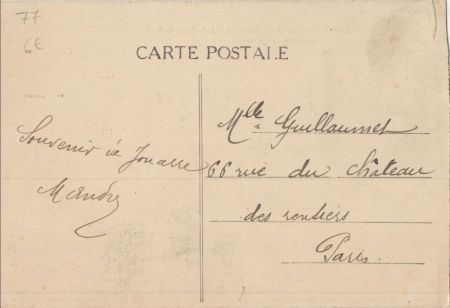 77
6€
CARTE POSTALE
Souvenir de Jouarre
Mlle Guillaumet
66 rue du château
des rentiers
Paris.